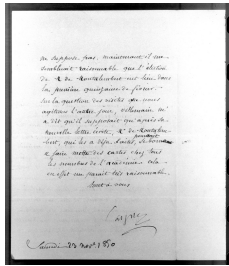 on suppose, pas, maintenant il me
semblerait raisonnable que l'élection
de M. de Montalembert eut lieu dans
la première quinzaine de février.
Sur la question des visites que nous
agitions l'autre jour, Villemain m'
a dit qu'il supposait qu'après sa
nouvelle lettre écrite, M. de Montalem-
bert, qui les a déjà faites, se
à faire mettre des cartes chez tous
les membres de l'académie. cela
en effet me paraît très raisonnable.
tout à vous
Samedi 23 nov. 1850